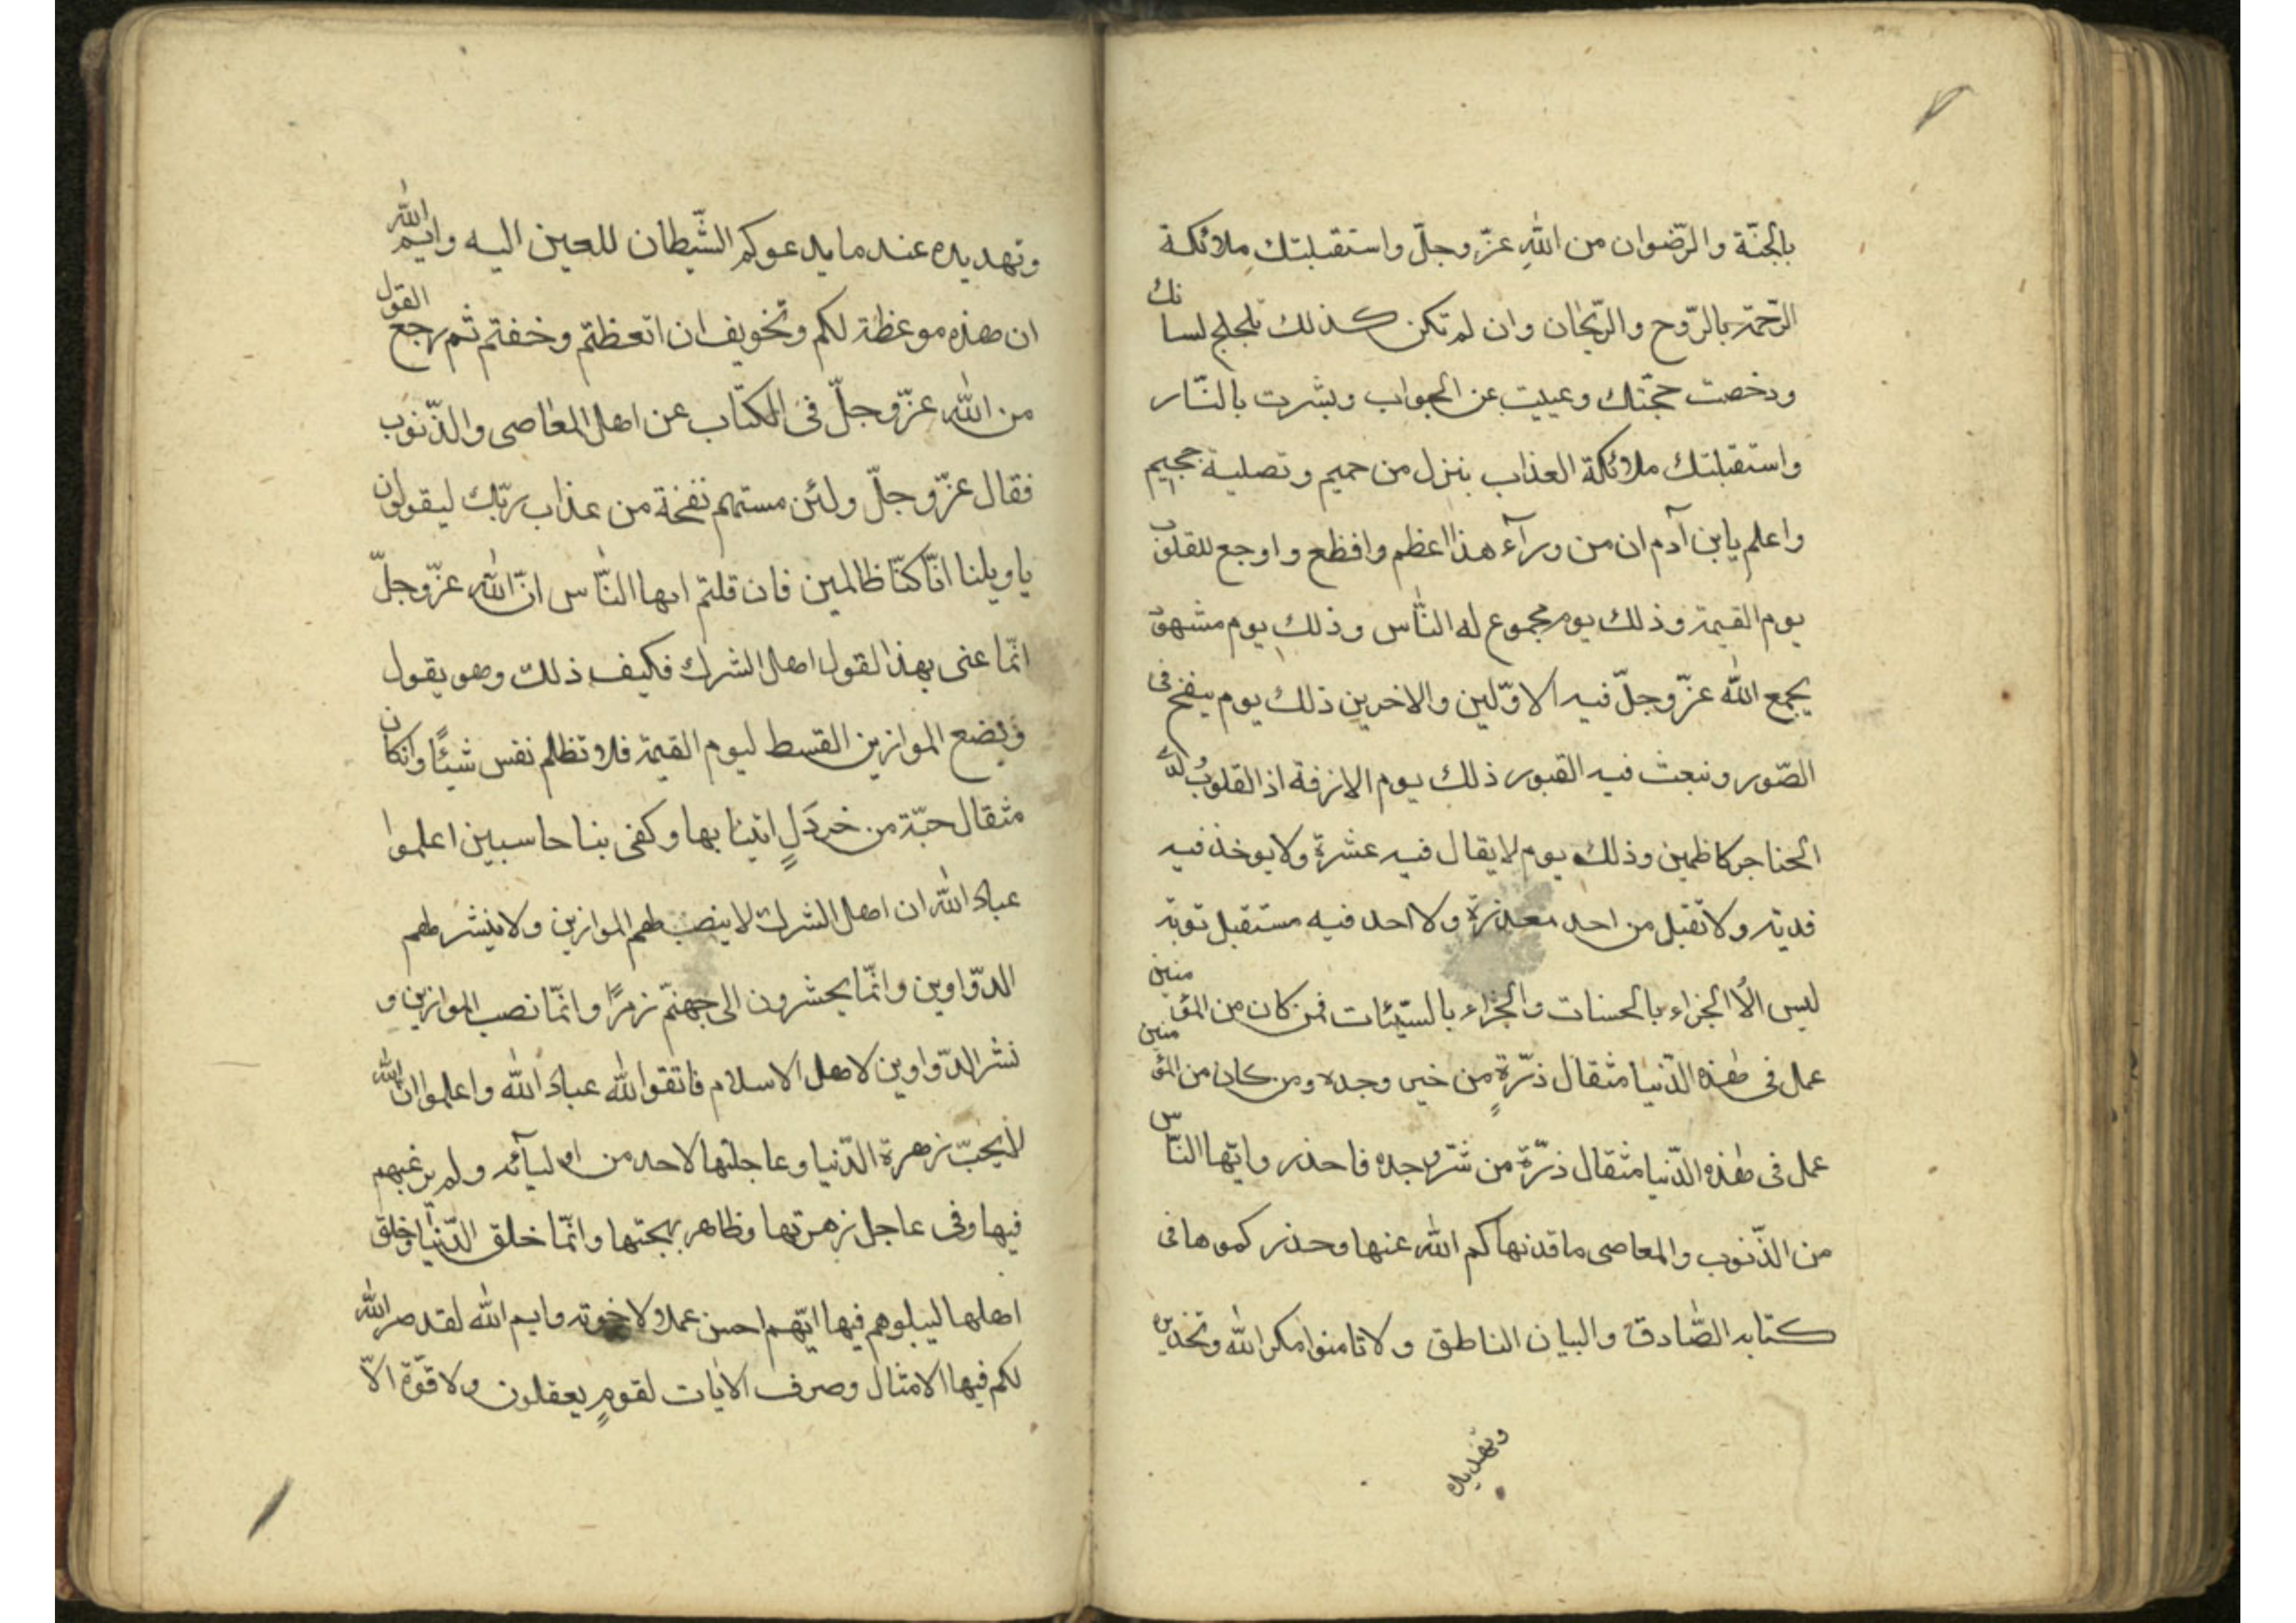 بالجنّة والرّضوان من الله عزّ وجلّ واستقبلتك ملائكة
الرّحمة بالرّوح والرّيحان وان لم تكن كذلك تلجلج لسانك
ودخصت حجّتك وعييت عن الجواب وبشرت بالنّار
واستقبلتك ملائكة العذاب بنزل من حميم وتصلية جحيم
واعلم يابن آدم ان من ورآء هذا اعظم وافظع واوجع للقلوب
يوم القيمة وذلك يوم مجموع له النّاس وذلك يوم مشهود
يجمع الله عزّ وجلّ فيه الاوّلين والاخرين ذلك يوم ينفخ فى
الصّور ونبعث فيه القبور ذلك يوم الازفة اذ القلوب لدى
الحناجر كاظمين وذلك يوم لا يقال فيه عشرة ولا يوخذ فيه
فدية ولا تقبل من احد معذرة ولا احد فيه مستقبل توبة
ليس الّا الجزاء بالحسنات والجزاء بالسّيّئات فمن كان من المؤمنين
عمل فى هذه الدّنيا مثقال ذرّةٍ من خير وجده ومن كان من المؤمنين
عمل فى هذه الدّنيا مثقال ذرّة من شرّ وجده فاحذر وايّها النّاس
من الذّنوب والمعاصى ما قد نهاكم الله عنها وحذر كموها فى
كتابه الصّادق والبيان الناطق ولا تامنوا مكر الله وتحذيره
وتهديده
وتهديده عند ما يدعوكم الشّيطان للعين اليه وايم الله
ان هذه موعظة لكم وتخويف ان اتعظتم وخفتم ثم رجع القول
من الله عزّ وجلّ فى الكتاب عن اهل المعاصى والذّنوب
فقال عزّ وجلّ ولئن مستهم نفخة من عذاب ربّك ليقولون
يا ويلنا انّا كنّا ظالمين فان قلتم ايها النّاس انّ الله عزّ وجلّ
انّما عنى بهذا القول اهل الشرك فكيف ذلك وهو يقول
ونضع الموازين القسط ليوم القيمة فلا تظلم نفس شيئًا وان كان
مثقال حبّة من خردَلٍ اتينا بها وكفى بنا حاسبين اعلموا
عباد الله ان اهل الشرك لا ينصب لهم الموازين ولا ينشر لهم
الدّواوين وانّما يحشرون الى جهنّم زمرًا وانّما نصب الموازين و
نشر الدّواوين لاهل الاسلام فاتقوا الله عباد الله واعلموا ان الله
لا يحبّ زهرة الدّنيا وعاجلتها لاحد من اوليآئه ولم يرغبهم
فيها وفى عاجل زهرتها وظاهر بهجتها وانّما خلق الدّنيا وخلق
اهلها ليبلوهم فيها ايّهم احسن عملا ولاخوته وايم الله لقد صر الله
لكم فيها الامثال وصرف الايات لقومٍ يعقلون ولا قوّة الّا